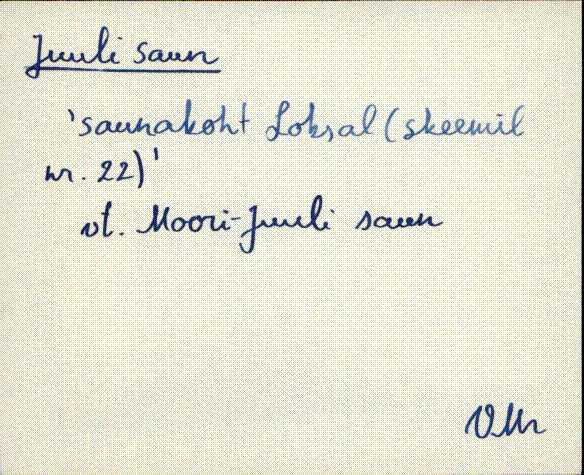 Juuli saun
'saunakoht Loksal (skeemil
nr. 22)'
vt. Moori-Juuli saun
VMr